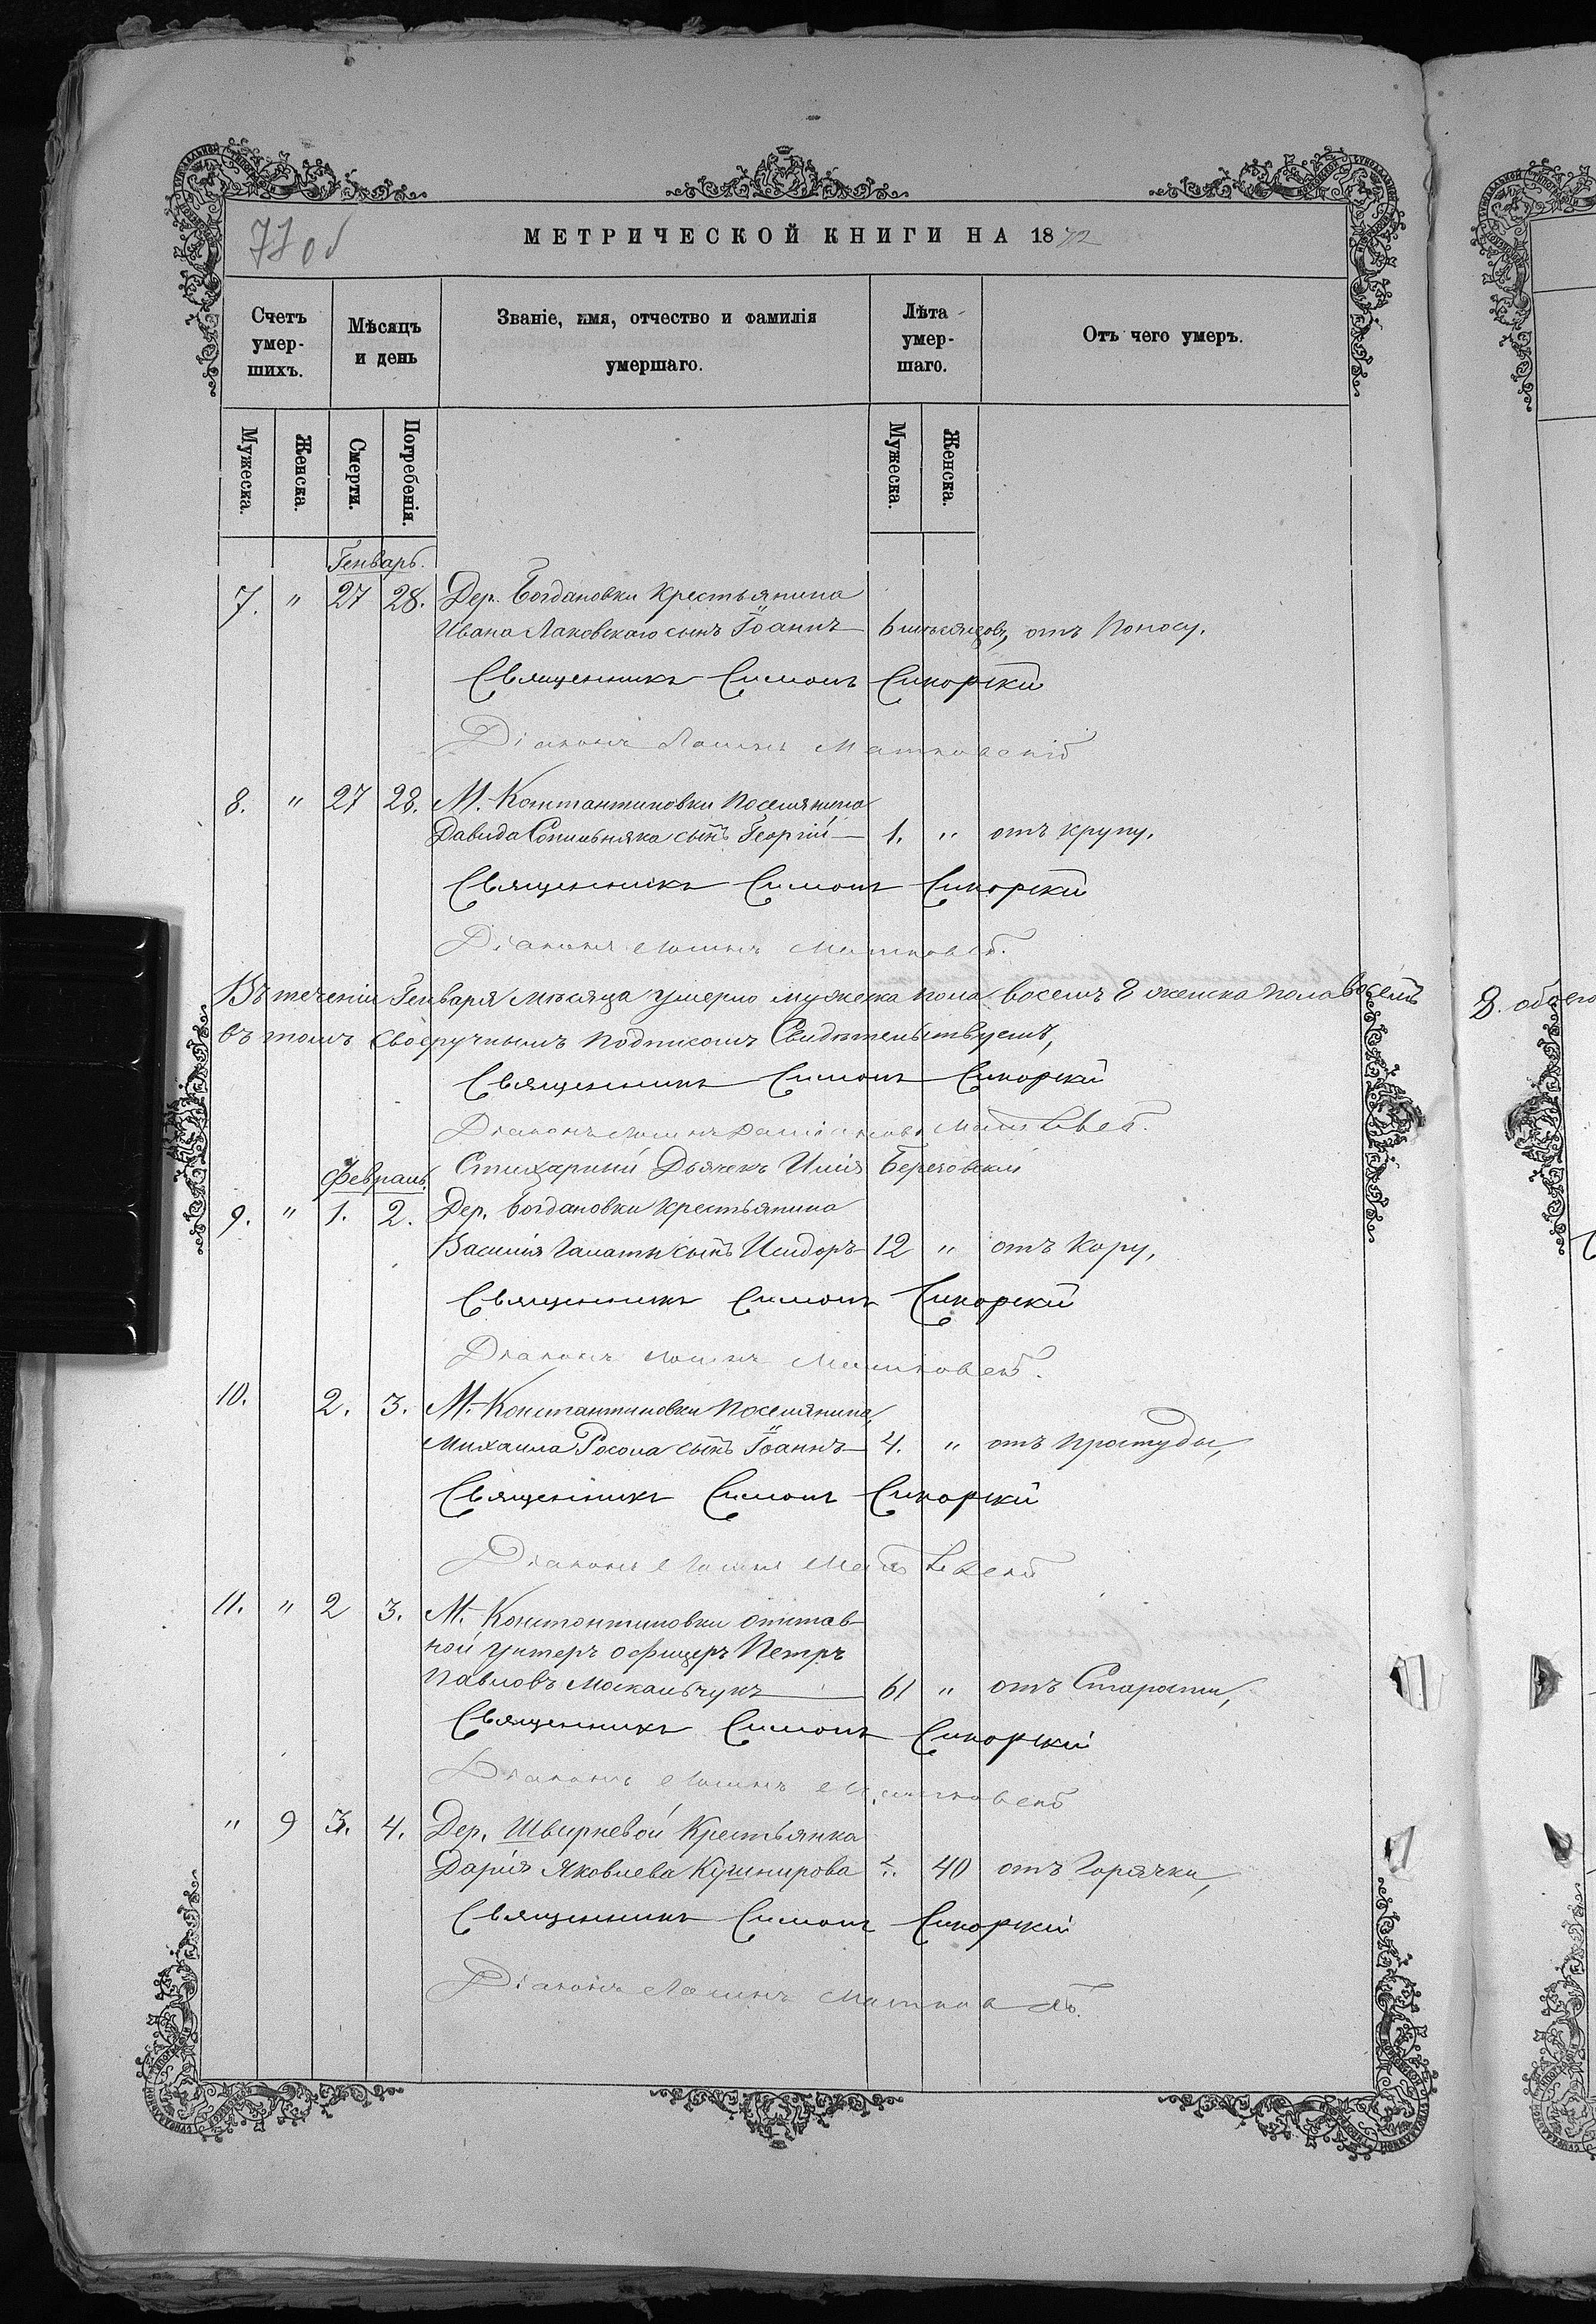 77 об
МЕТРИЧЕСКОЙ КНИГИ НА 1872
Счетъ умер-шихъ.
Мѣсяцъ и день
Званіе, имя, отчество и фамилія умершаго.
Лѣта умер-шаго.
Отъ чего умеръ.
Мужеска.
Женска.
Смерти.
Погребенія.
Мужеска.
Женска.
Генварь.
7. " 27 28. Дер. Богдановки крестьянина
Ивана Лаковскаго сынъ Іоаннъ — 6 мѣсяцовъ, отъ Поносу.
Священникъ Симонъ Сикорскій
Діаконъ Матковскій
8. " 27 28. М. Константиновки поселянина
Давида сынъ Георгій — 1. " отъ крупу.
Священникъ Симонъ Сикорскій
Діаконъ
Въ теченіи Генваря мѣсяца умерло мужеска пола восемъ 8 женска пола восемъ
8. общего
въ томъ своеручнымъ подписомъ Свидѣтельствуемъ,
Священникъ Симонъ Сикорскій
Діаконъ
Стихарный Дьячекъ Илія Березовскій
Февраль.
9. " 1. 2. Дер. Богдановки крестьянина
Василія Галаты сынъ Исидоръ — 12 " отъ Кору,
Священникъ Симонъ Сикорскій
Діаконъ
10. 2. 3. М. Константиновки поселянина
Михаила Росола сынъ Іоаннъ — 4. " отъ простуды,
Священникъ Симонъ Сикорскій
Діаконъ
11. " 2 3. М. Константиновки отстав-
ной унтеръ офицеръ Петръ
Павловъ Москальчукъ — 61 " отъ Старости,
Священникъ Симонъ Сикорскій
Діаконъ
" 9 3. 4. Дер. Швирневой Крестьянка
Дарія Яковлева Кушнирова " 40 отъ Горячки,
Священникъ Симонъ Сикорскій
Діаконъ